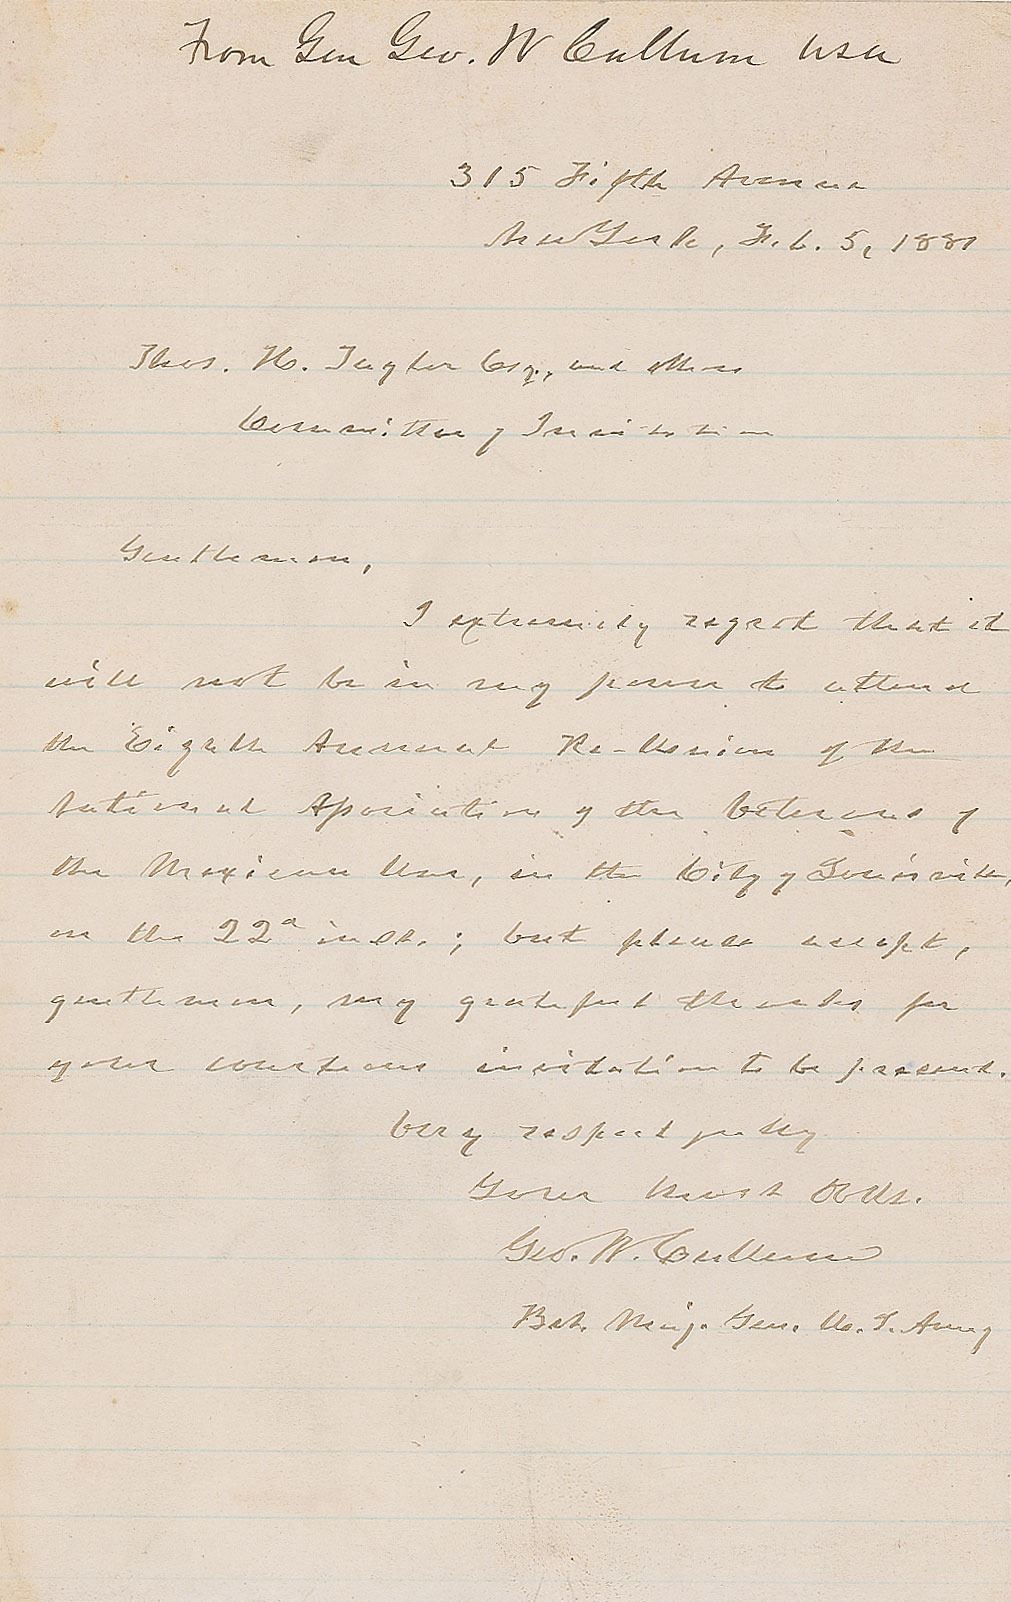 From Gen Geo. W Cullum USA
315 Fifth Avenue
New York, Feb. 5, 1881
Thos. H. Taylor Esq., and others
Committee of Invitation
Gentlemen,
I extremely regret that it
will not be in my power to attend
the Eighth Annual Re-Union of the
National Association of the Veterans of
the Mexican War, in the City of Louisville,
on the 22d inst.; but please accept,
gentlemen, my grateful thanks for
your courteous invitation to be present.
Very respectfully
Your Most Obdt.
Geo. W. Cullum
Bvt. Maj. Gen. U. S. Army